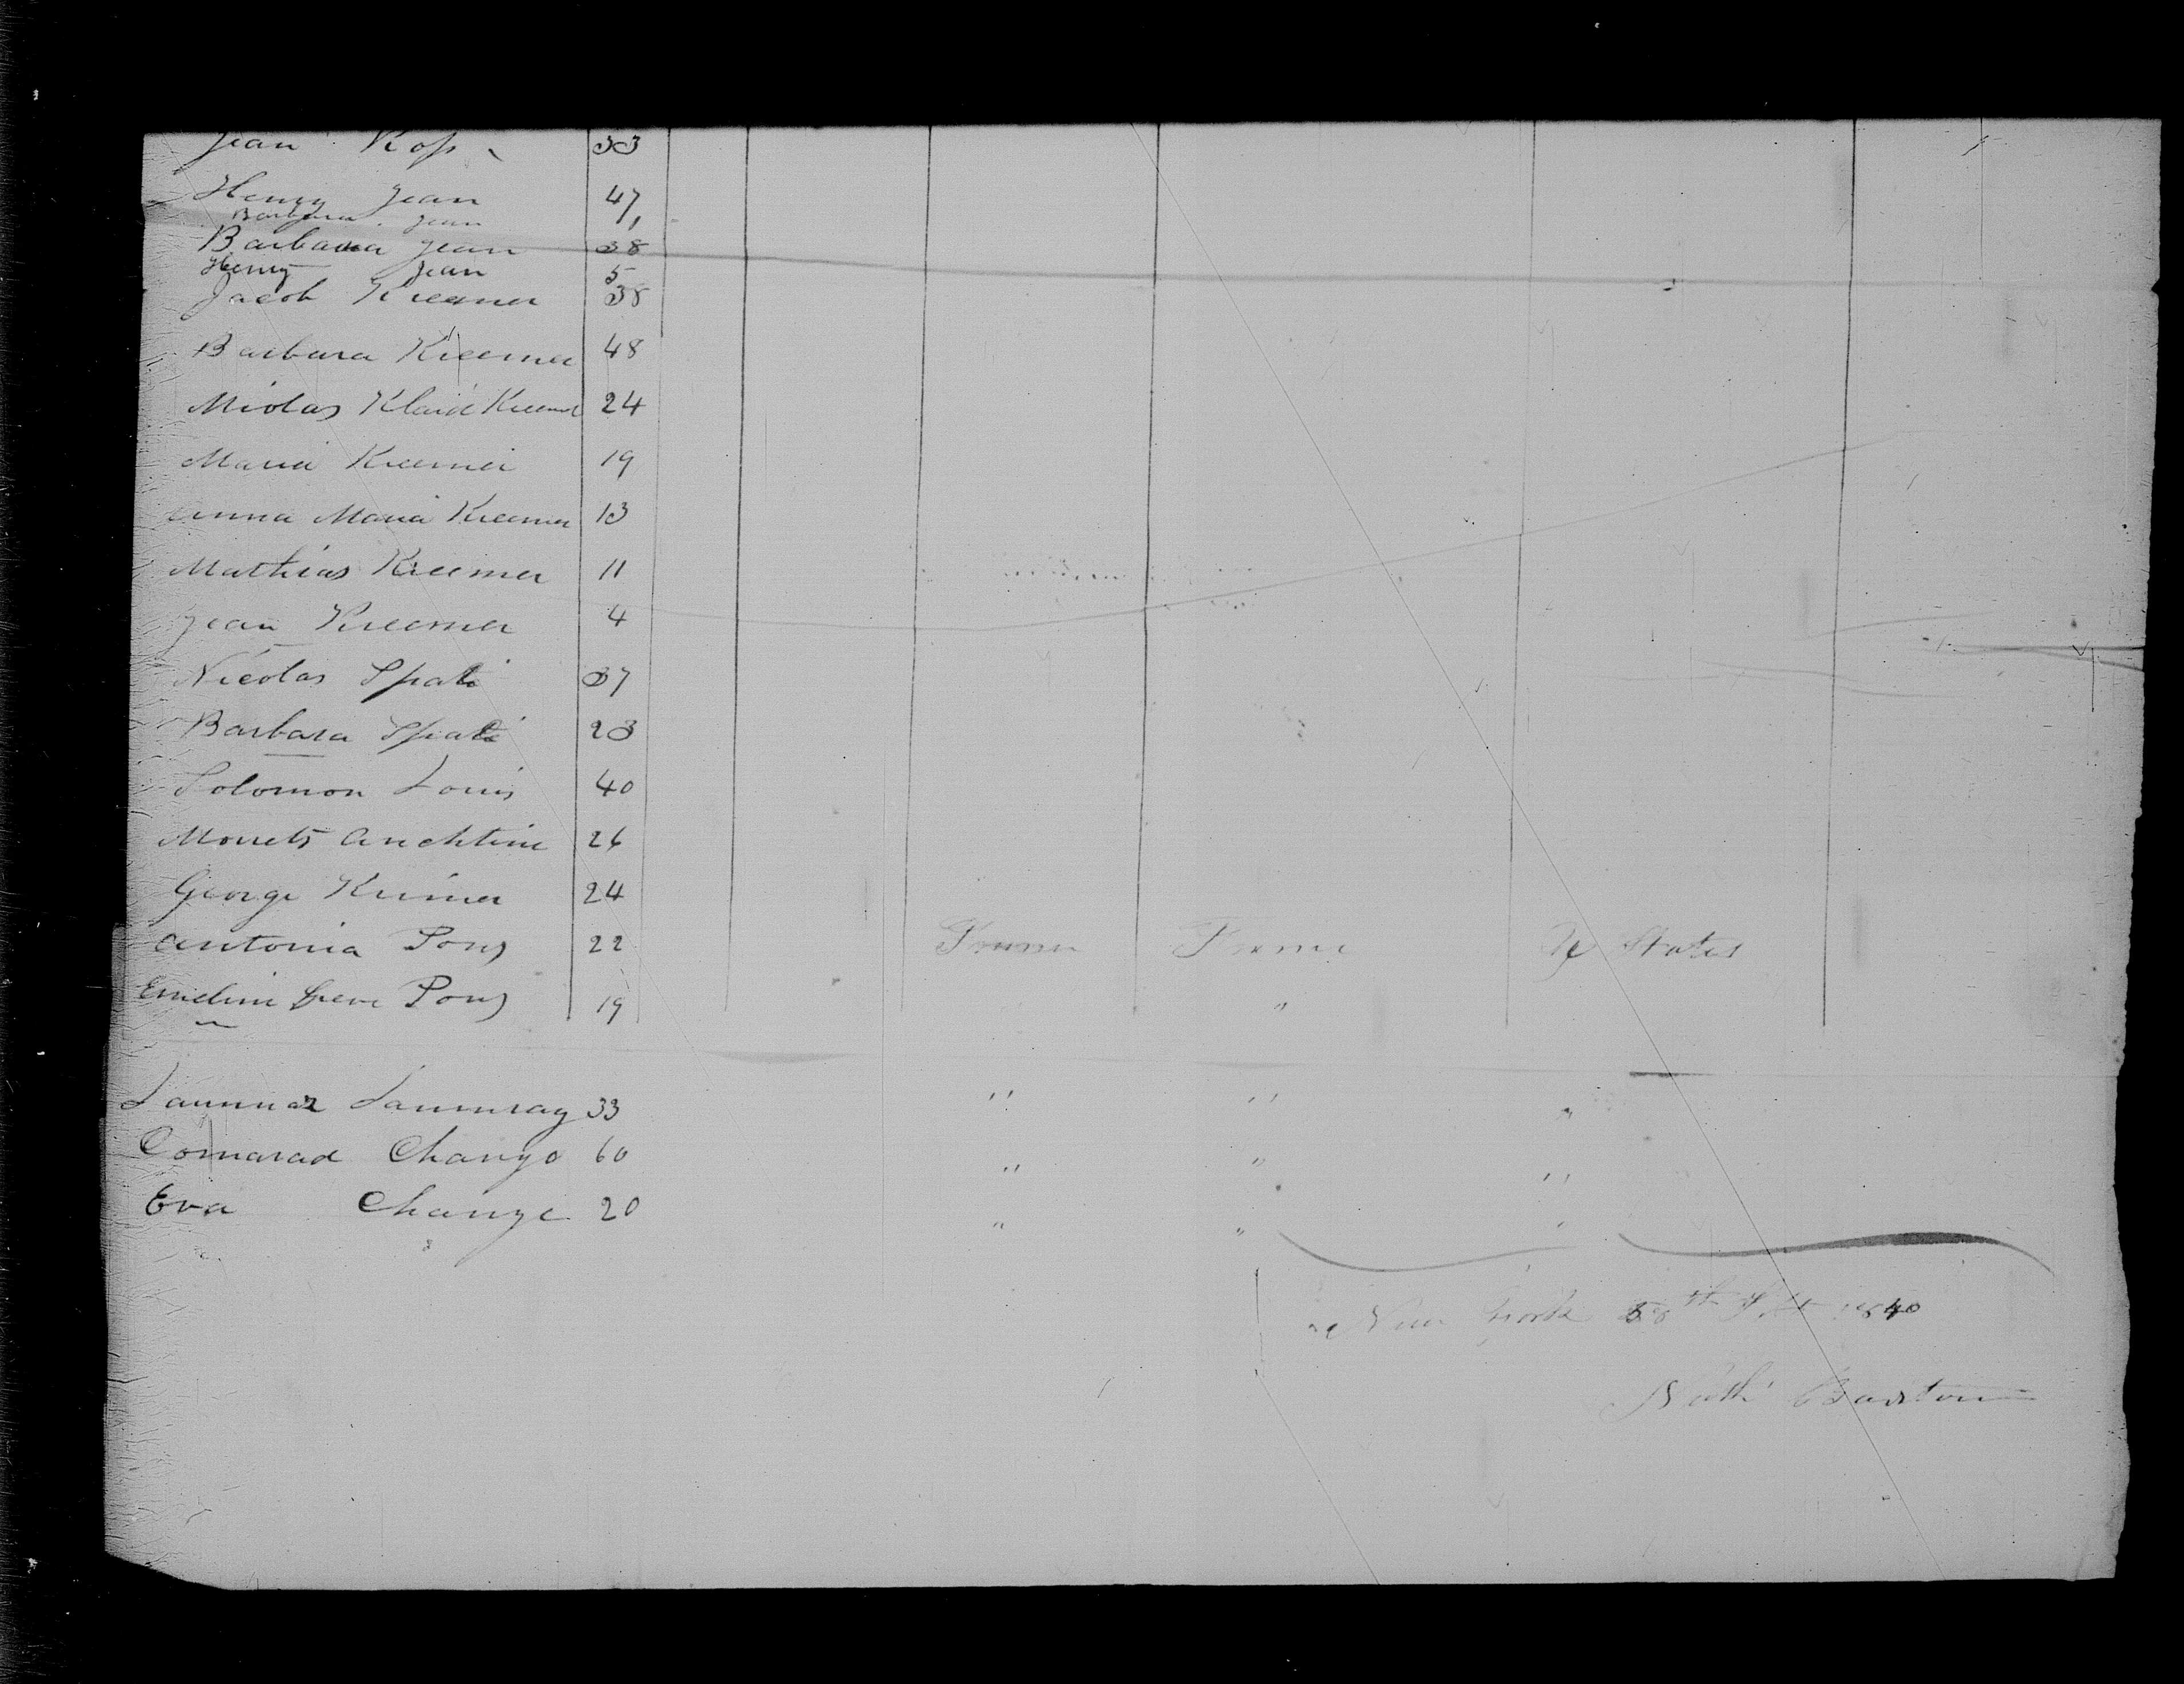 Jean Kop 33
Henry Jean 47
Barbara Jean 1
Barbara Jean 38
Henry Jean 5
Jacob Kreemer 38
Barbara Kreemer 48
Miolas Klaid Kreemer 24
Maria Kreemer 19
Anna Maria Kreemer 13
Mathias Kreemer 11
Jean Kreemer 4
Nicolas Spati 37
Barbara Spati 23
Solomon Louis 40
Morrets 26
George Krimer 24
Antonia Pons 22 U States
Emeline Pons 19 "
33 " " "
Comarad Change 60 " " "
Eva Change 20 " " "
New York 1840
Nath Barstow